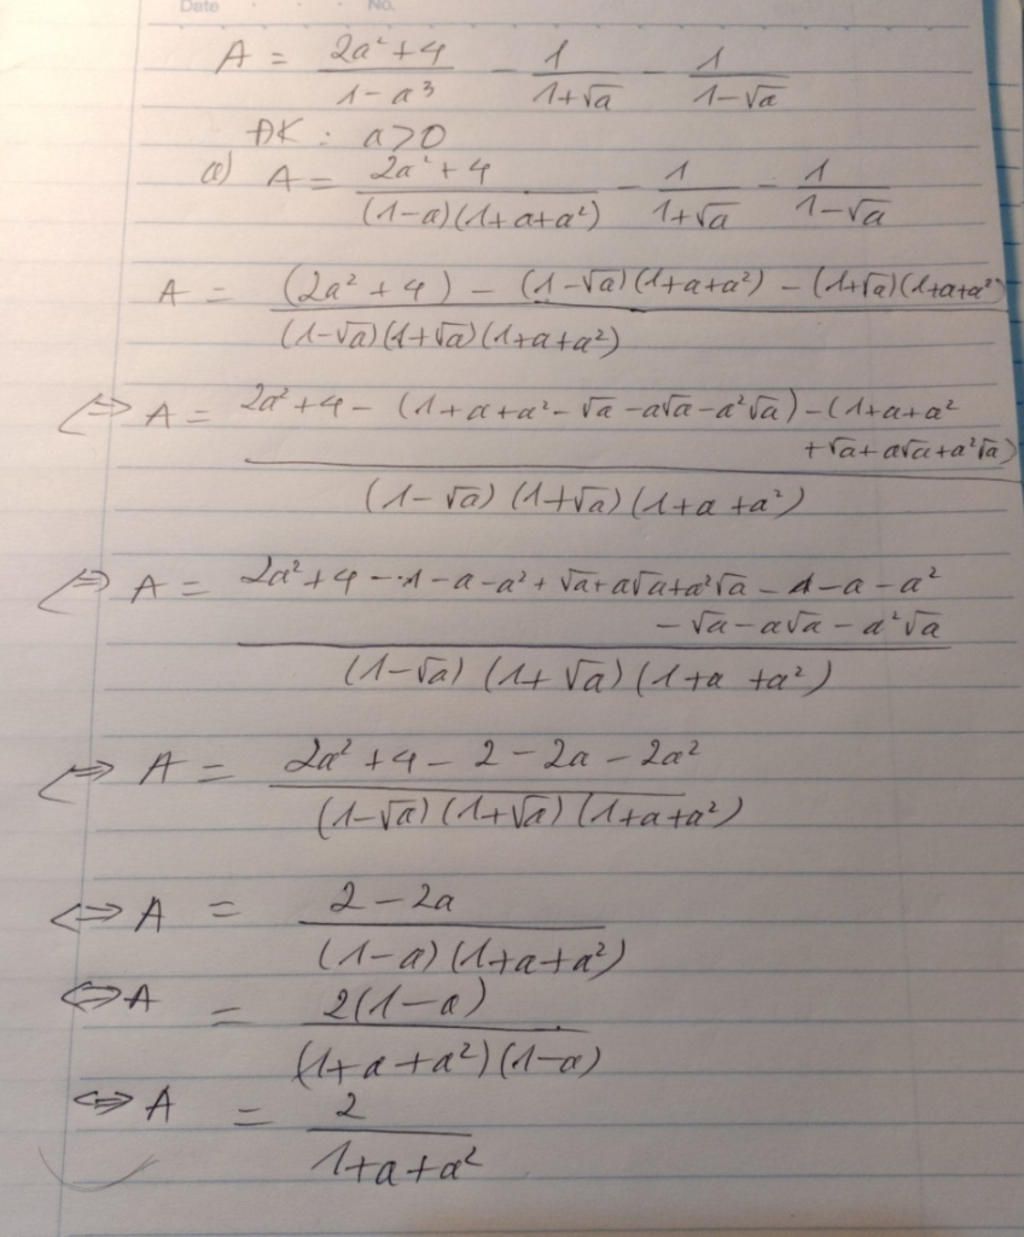 Date No.
A = (2a² + 4)/(1 - a³) - 1/(1+√a) - 1/(1-√a)
ĐK : a > 0
a) A = (2a² + 4)/((1-a)(1+a+a²)) - 1/(1+√a) - 1/(1-√a)
A = ((2a² + 4) - (1-√a)(1+a+a²) - (1+√a)(1+a+a²))/((1-√a)(1+√a)(1+a+a²))
⇔ A = (2a² + 4 - (1+a+a² - √a - a√a - a²√a) - (1+a+a²
+ √a + a√a + a²√a))/((1-√a)(1+√a)(1+a+a²))
⇔ A = (2a² + 4 - 1 - a - a² + √a + a√a + a²√a - 1 - a - a²
- √a - a√a - a²√a)/((1-√a)(1+√a)(1+a+a²))
⇔ A = (2a² + 4 - 2 - 2a - 2a²)/((1-√a)(1+√a)(1+a+a²))
⇔ A = (2 - 2a)/((1-a)(1+a+a²))
⇔ A = 2(1-a)/((1+a+a²)(1-a))
⇔ A = 2/(1+a+a²)